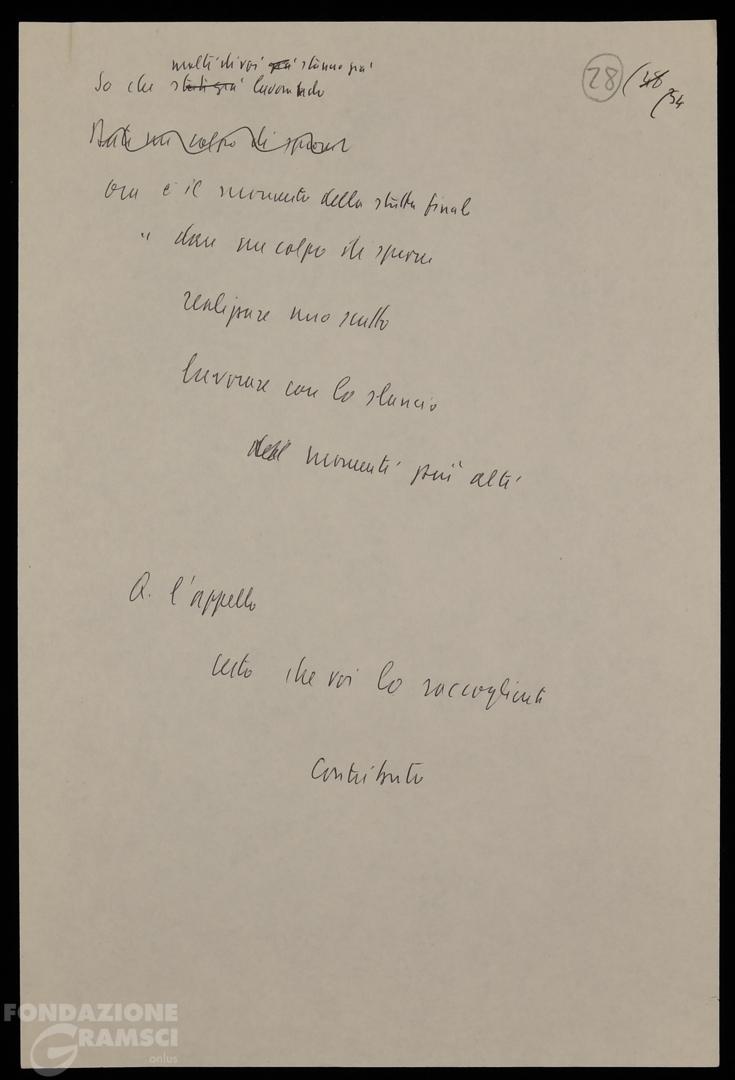 molti di voi già stanno già
So che state già lavorando
28 (48
(54
Date un colpo di sprone
Ora è il momento della stretta finale
" dare un colpo di sprone
realizzare uno scatto
lavorare con lo slancio
dei momenti più alti
Q. l'appello
certo che voi lo raccoglierete
Contributo
FONDAZIONE
GRAMSCI
onlus